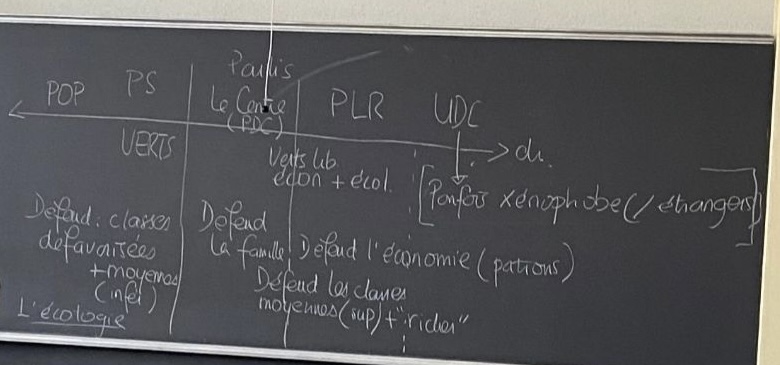 Partis
POP PS Le Centre PLR UDC
(PDC)
VERTS
Verts lib
écon + écol.
→ dr.
[Parfois xénophobe (/ étrangers)]
Défend : classes
défavorisées
+ moyennes
(infér)
L'écologie
Défend
la famille
Défend l'économie (patrons)
Défend les classes
moyennes (sup) + "riches"